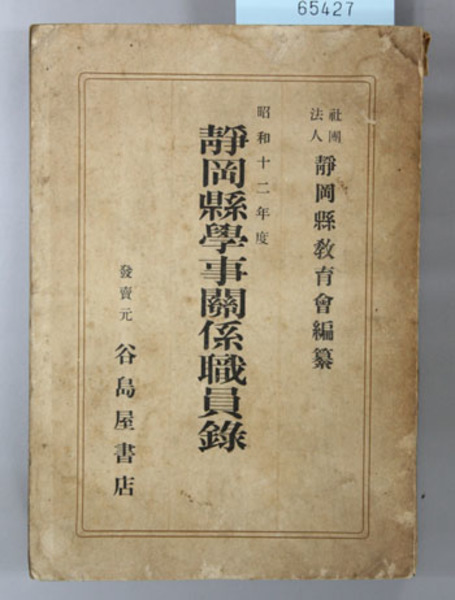 65427
社團法人 靜岡縣教育會編纂
昭和十二年度
靜岡縣學事關係職員錄
發賣元 谷島屋書店